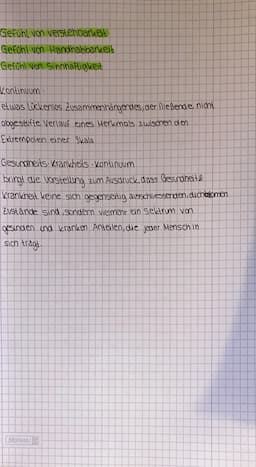 Gefühl von Verstehbarkeit
Gefühl von Handhabbarkeit
Gefühl von Sinnhaftigkeit
Kontinuum
etwas lückenlos Zusammenhängendes, der fließende, nicht
abgestufte Verlauf eines Merkmals zwischen den
Extrempolen einer Skala
Gesundheits-Krankheits-Kontinuum
bringt die Vorstellung zum Ausdruck, dass Gesundheit &
Krankheit keine sich gegenseitig ausschliessenden, dichotomen
Zustände sind, sondern vielmehr ein Spektrum von
gesunden und kranken Anteilen, die jeder Mensch in
sich trägt.